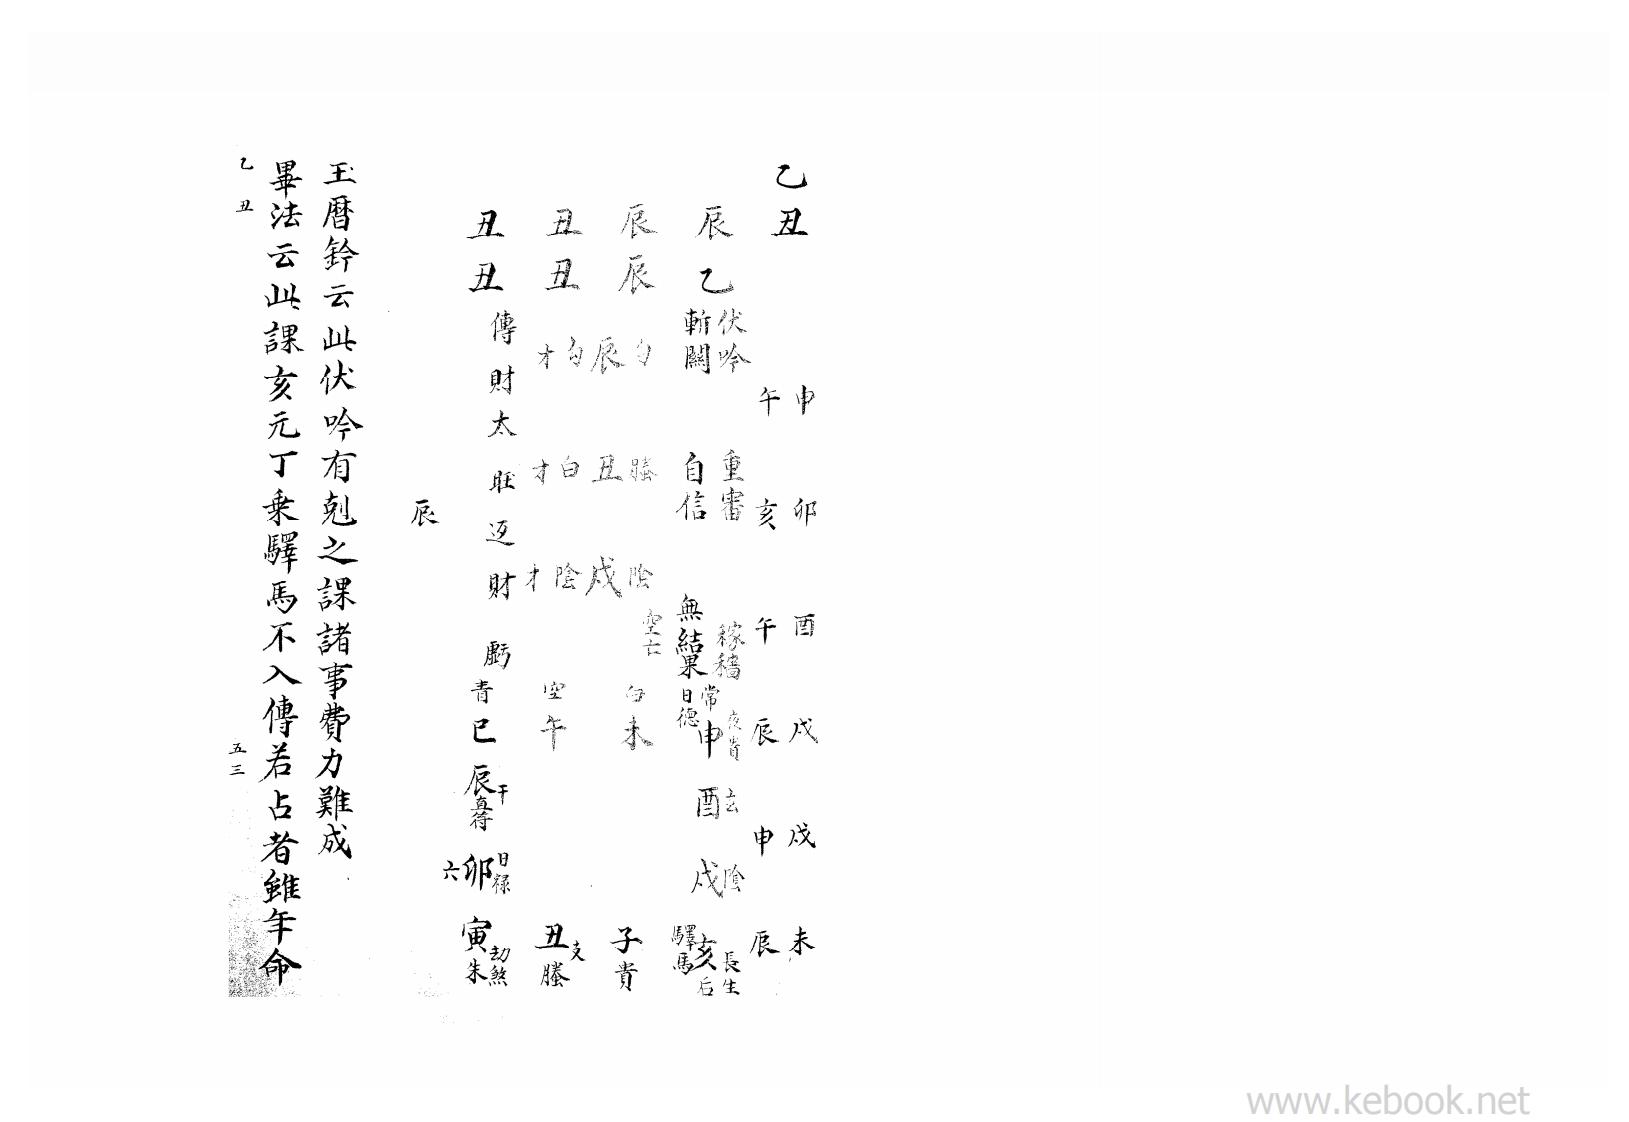 乙丑
申 卯 酉 戌 戌 未
午 亥 午 辰 申 辰
辰乙
伏吟 重審 稼穡
斬關 自信 無結果
夜貴
常申 日德
玄酉
陰戌
長生 亥后 驛馬
辰辰
勾 螣 陰 空亡
辰 丑 戌
白未
子貴
丑丑
勾 白 陰
才 才 才
空午
丑支螣
丑丑
傳財太旺返財虧
青巳
辰干真符
日禄卯六
寅劫煞朱
辰
玉曆鈐云此伏吟有剋之課諸事費力難成
畢法云此課亥元丁乗驛馬不入傳若占者雖年命
乙丑
五三
www.kebook.net